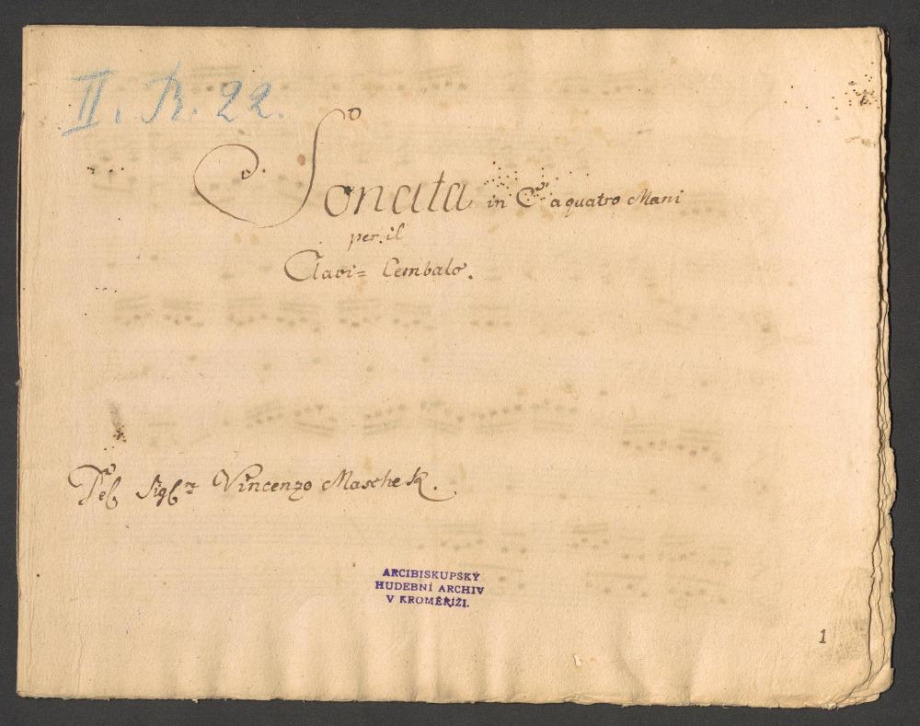 II. B. 22.
Sonata in C a quatro Mani
per il
Clavi= Cembalo.
Del Sigre Vincenzo Maschek.
ARCIBISKUPSKÝ
HUDEBNÍ ARCHIV
V KROMĚŘÍŽI.
1